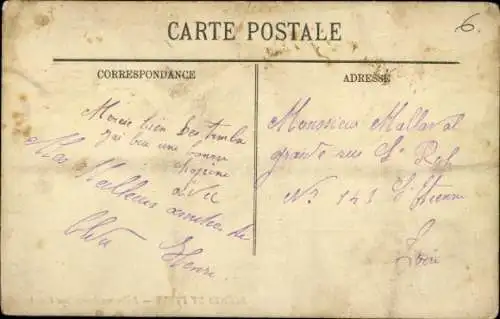 6.
CARTE POSTALE
CORRESPONDANCE
ADRESSE
Merci bien des timbr
j'ai bu une bonne
chopine
avec
Mes Meilleurs amitiés de
Henri
Monsieur Mallaval
grande rue St Roch
No 143 St Etienne
Loire